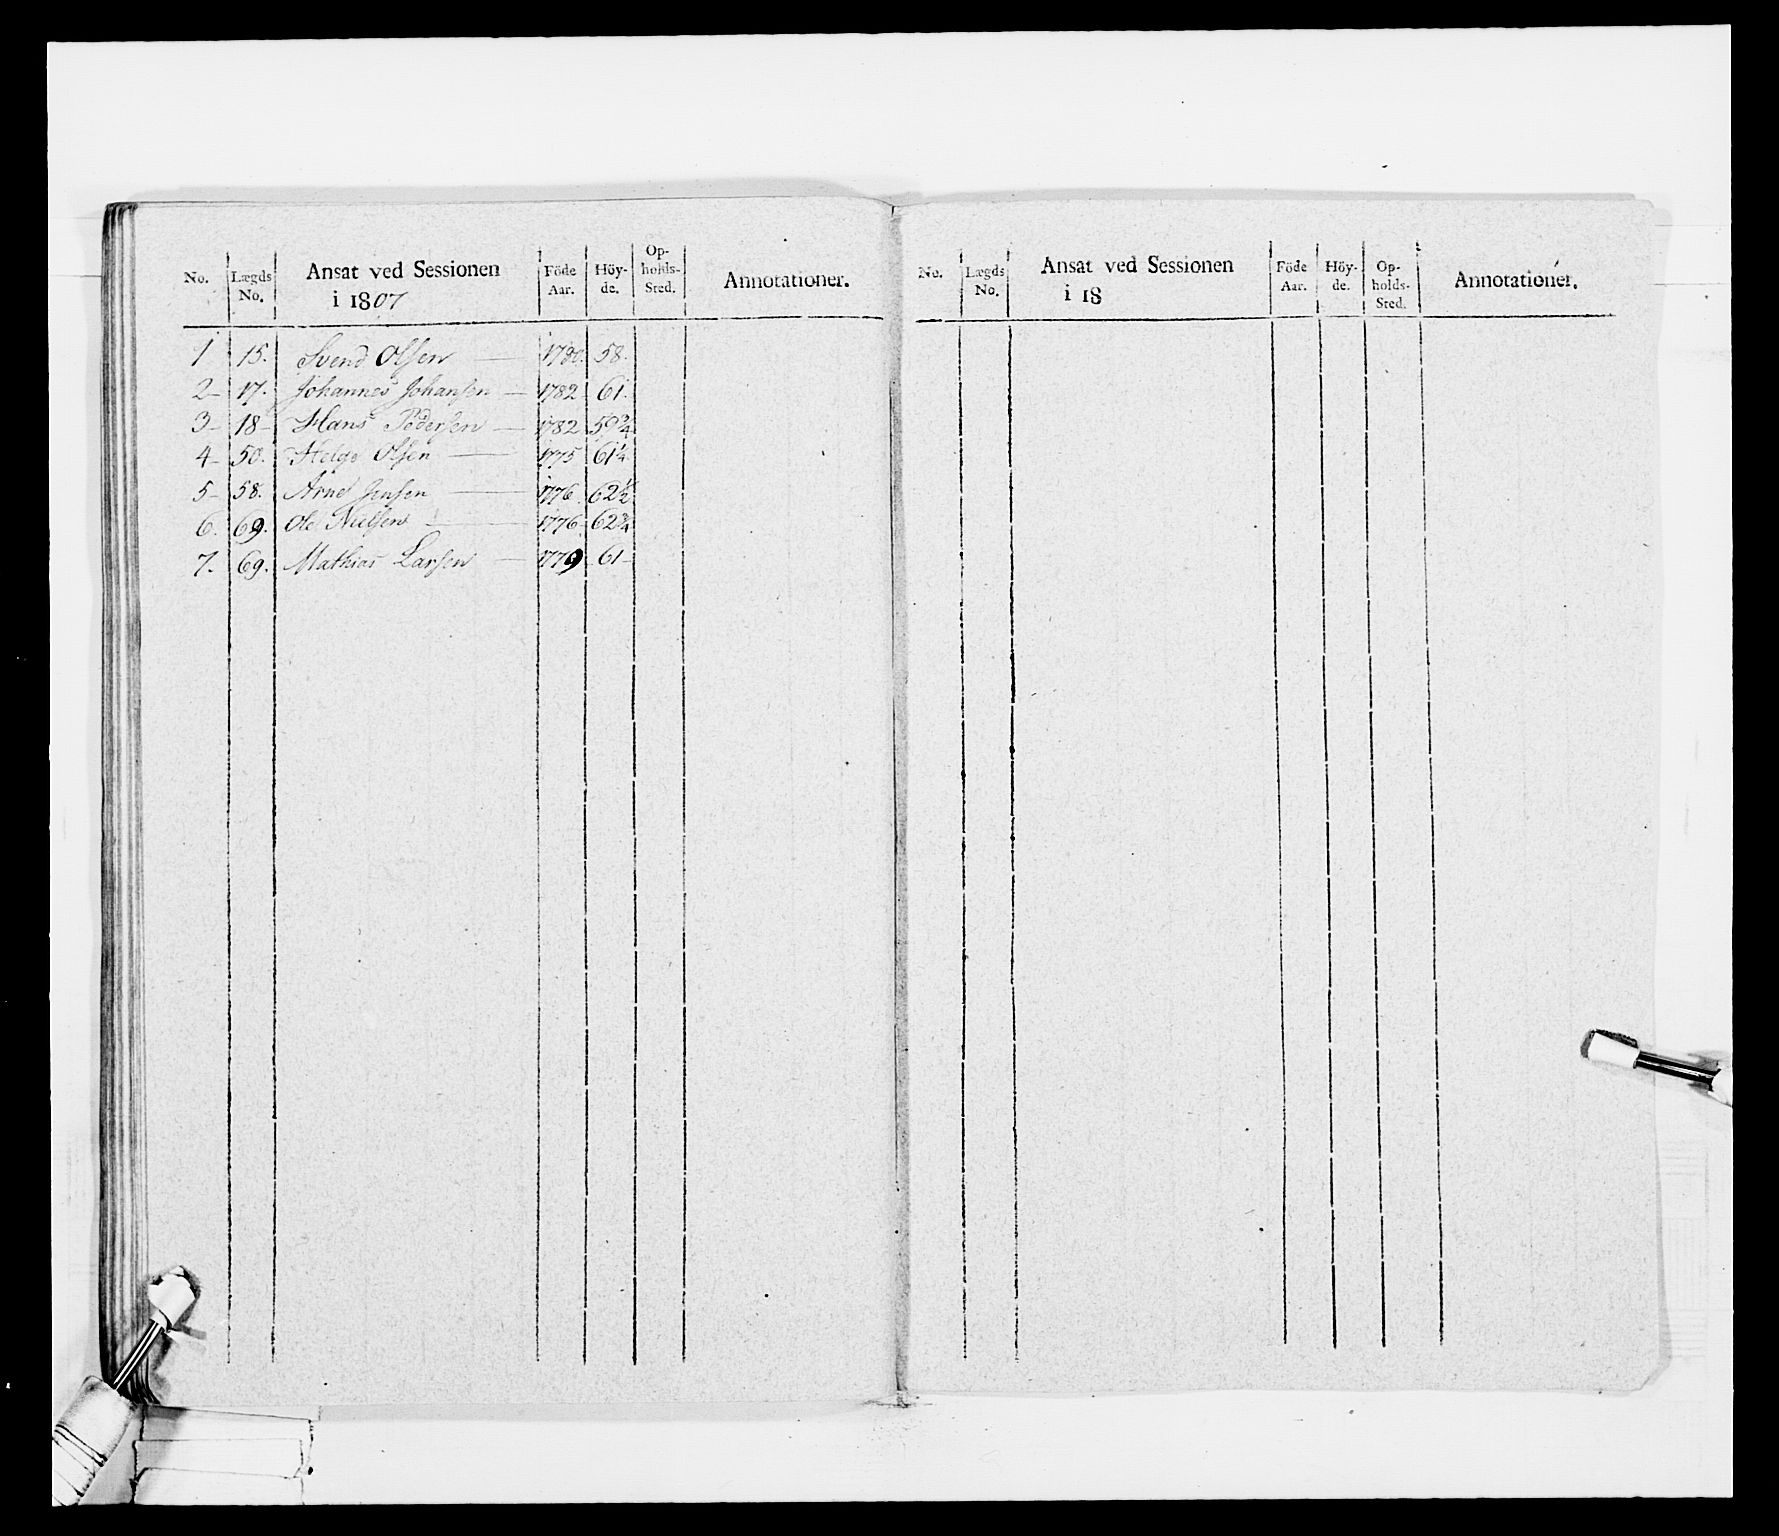 No. Lægds No. Ansat ved Sessionen i 1807 Föde Aar. Höy-de. Op-holds-Sted. Annotationer.
1 15. Svend Olsen — 1780. 58.
2– 17. Johannes Johansen — 1782 61.
3– 18– Hans Pedersen — 1782 59 3/4
4– 50. Helge Olsen — 1775 61 1/4
5– 58. Arne Jensen — 1776 62 1/2
6. 69. Ole Nielsen — 1776 62 3/4
7. 69. Mathias Larsen — 1779 61–
No. Lægds No. Ansat ved Sessionen i 18 Föde Aar. Höy-de. Op-holds-Sted. Annotationer.